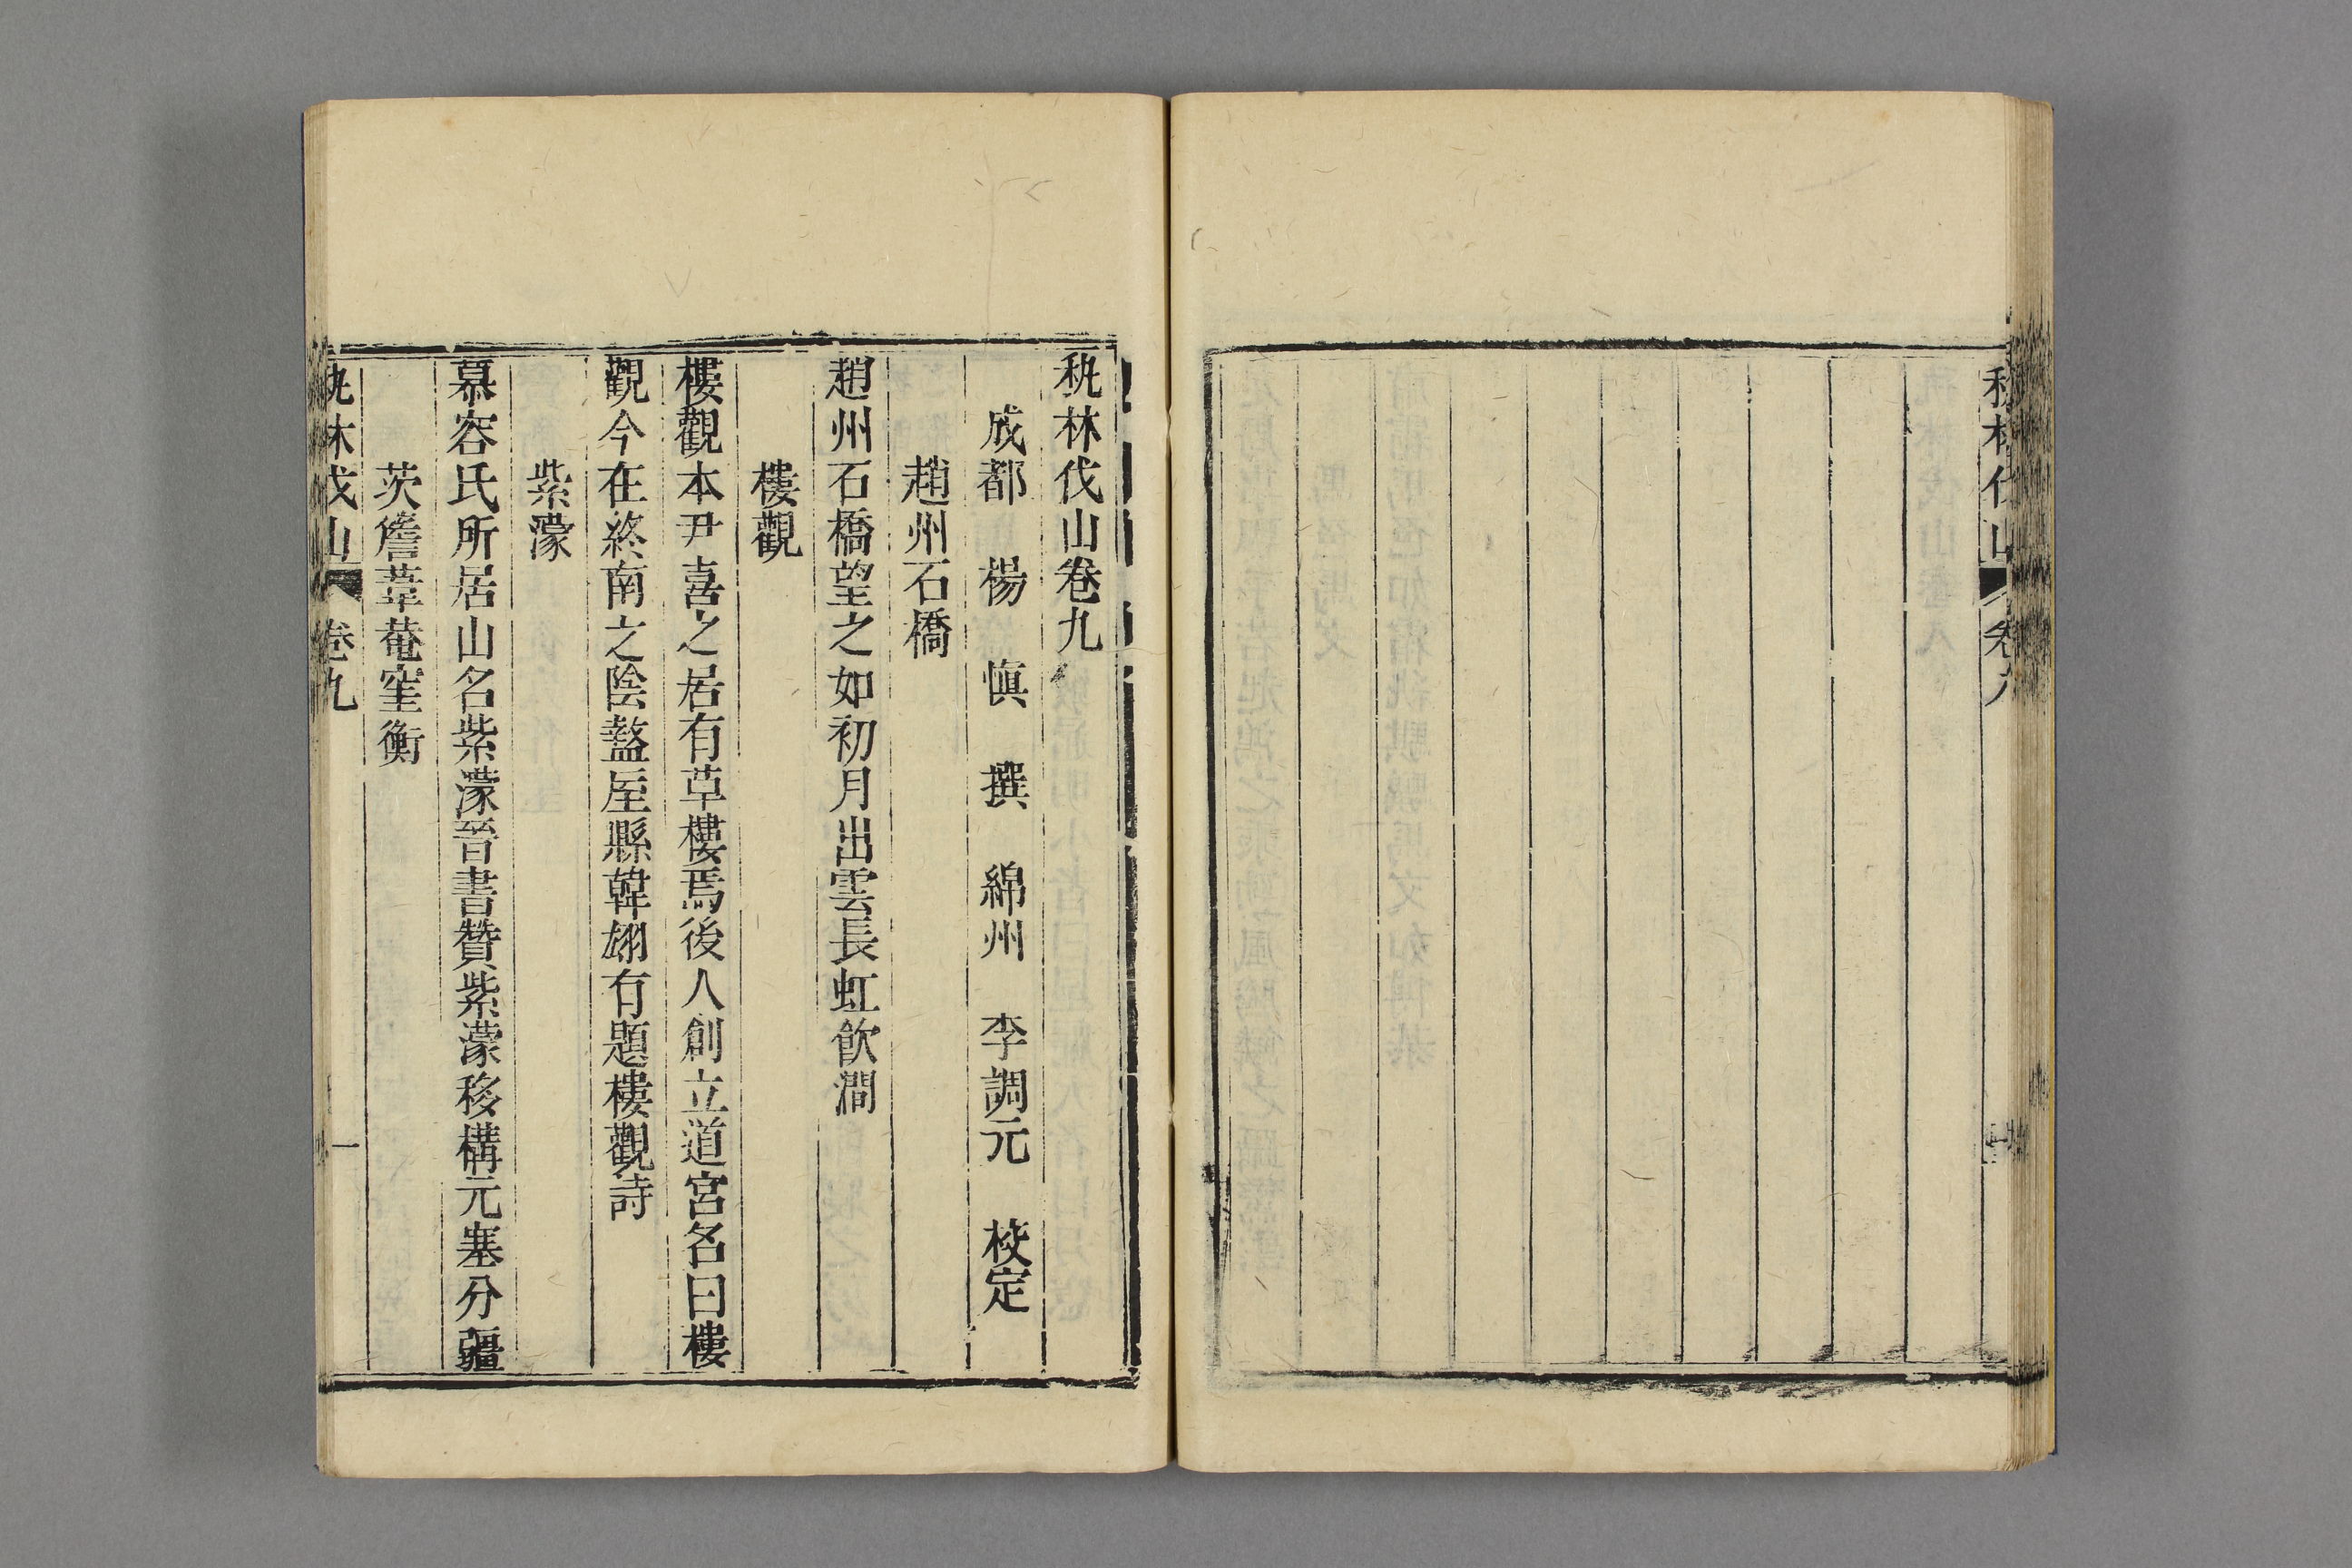 秇林伐山卷九
成都 楊慎 撰 綿州 李調元 校定
趙州石橋
趙州石橋望之如初月出雲長虹飲澗
樓觀
樓觀本尹喜之居有草樓焉後人創立道宮名曰樓
觀今在終南之陰盩厔縣韓翃有題樓觀詩
紫濛
慕容氏所居山名紫濛晉書贊紫濛移構元塞分疆
茨簷葦菴窐衡
秇林伐山 卷九 一